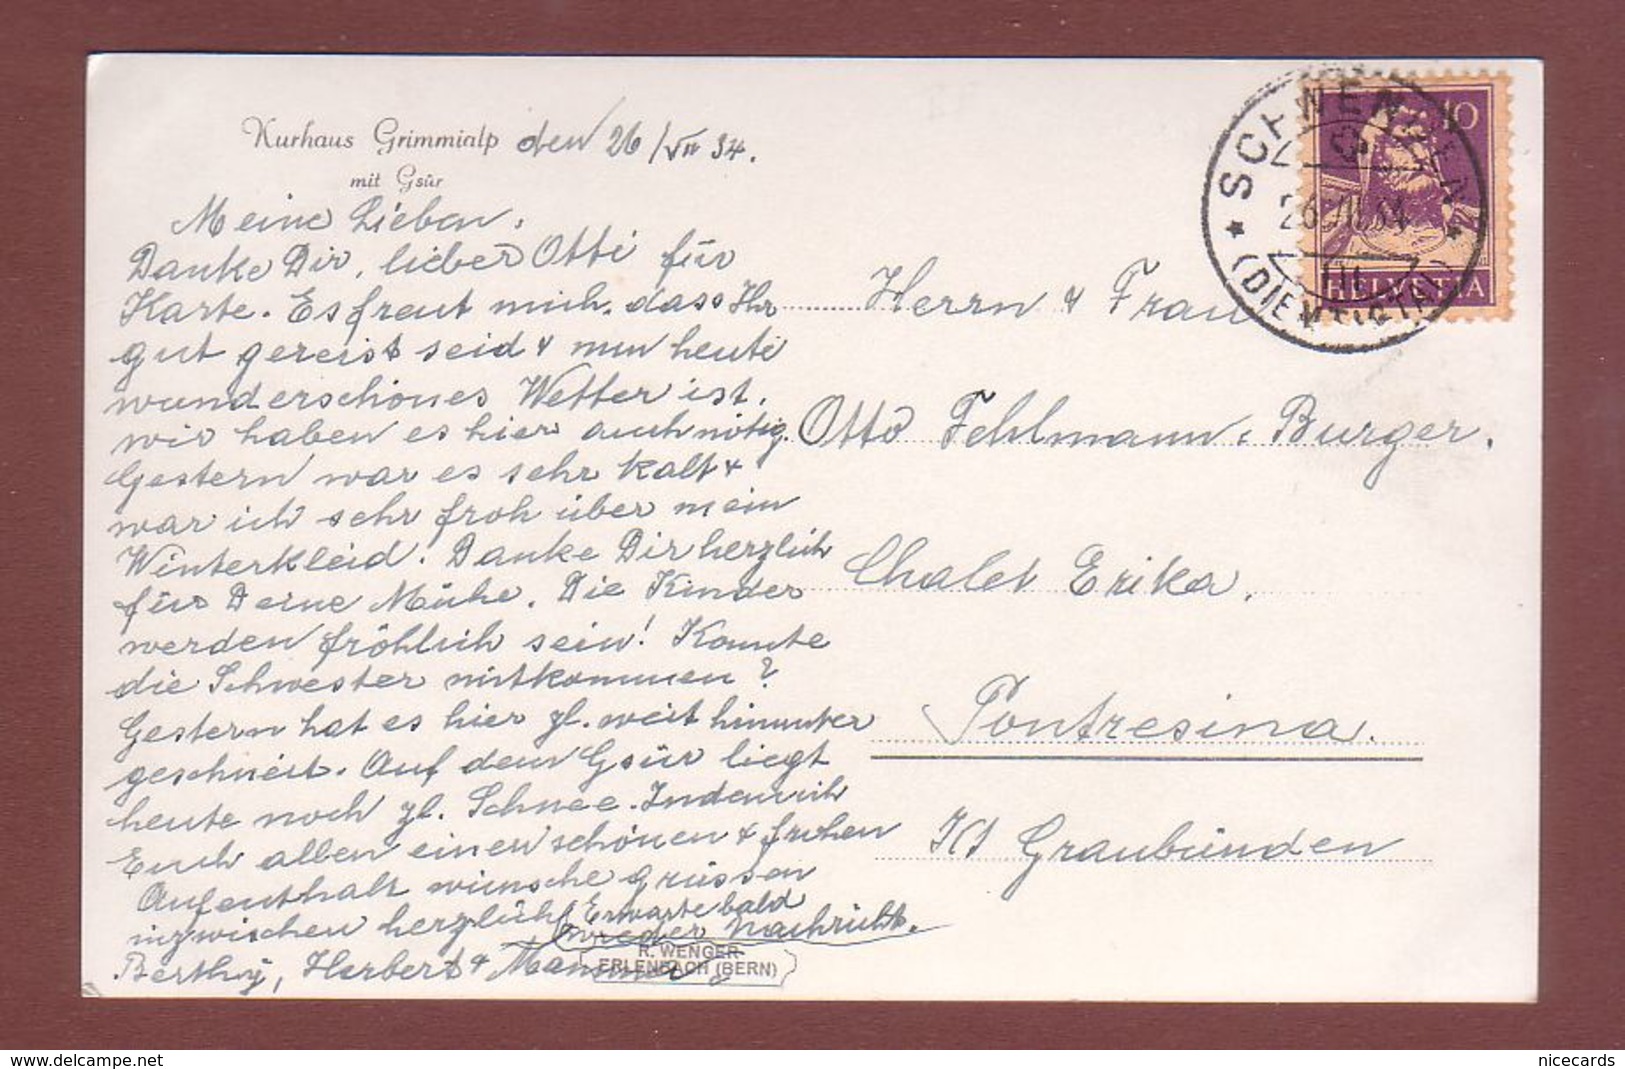 Kurhaus Grimmialp den 26/VII 34.
mit Gsür
Meine Lieben,
Danke Dir, lieber Otti für
Karte. Es freut mich, dass Ihr
gut gereist seid & nun heute
wunderschönes Wetter ist.
wir haben es hier auch nötig.
Gestern war es sehr kalt &
war ich sehr froh über mein
Winterkleid! Danke Dir herzlich
für Deine Mühe. Die Kinder
werden fröhlich sein! Konnte
die Schwester mitkommen?
Gestern hat es hier zl. weit hinunter
geschneit. Auf dem Gsür liegt
heute noch zl. Schnee. Indem ich
Euch allen einen schönen & frohen
Aufenthalt wünsche grüssen
inzwischen herzlich
Berthy, Herbert &
Erwarte bald
wieder Nachricht.
R. WENGER
ERLENBACH (BERN)
Herrn & Frau
Otto Fehlmann-Burger.
Chalet Erika.
Pontresina.
Kt Graubünden
10
HELVETIA
SCHWENDEN
26.VII.34
III
(DIEMTIGTAL)
delcampe.net
nicecards